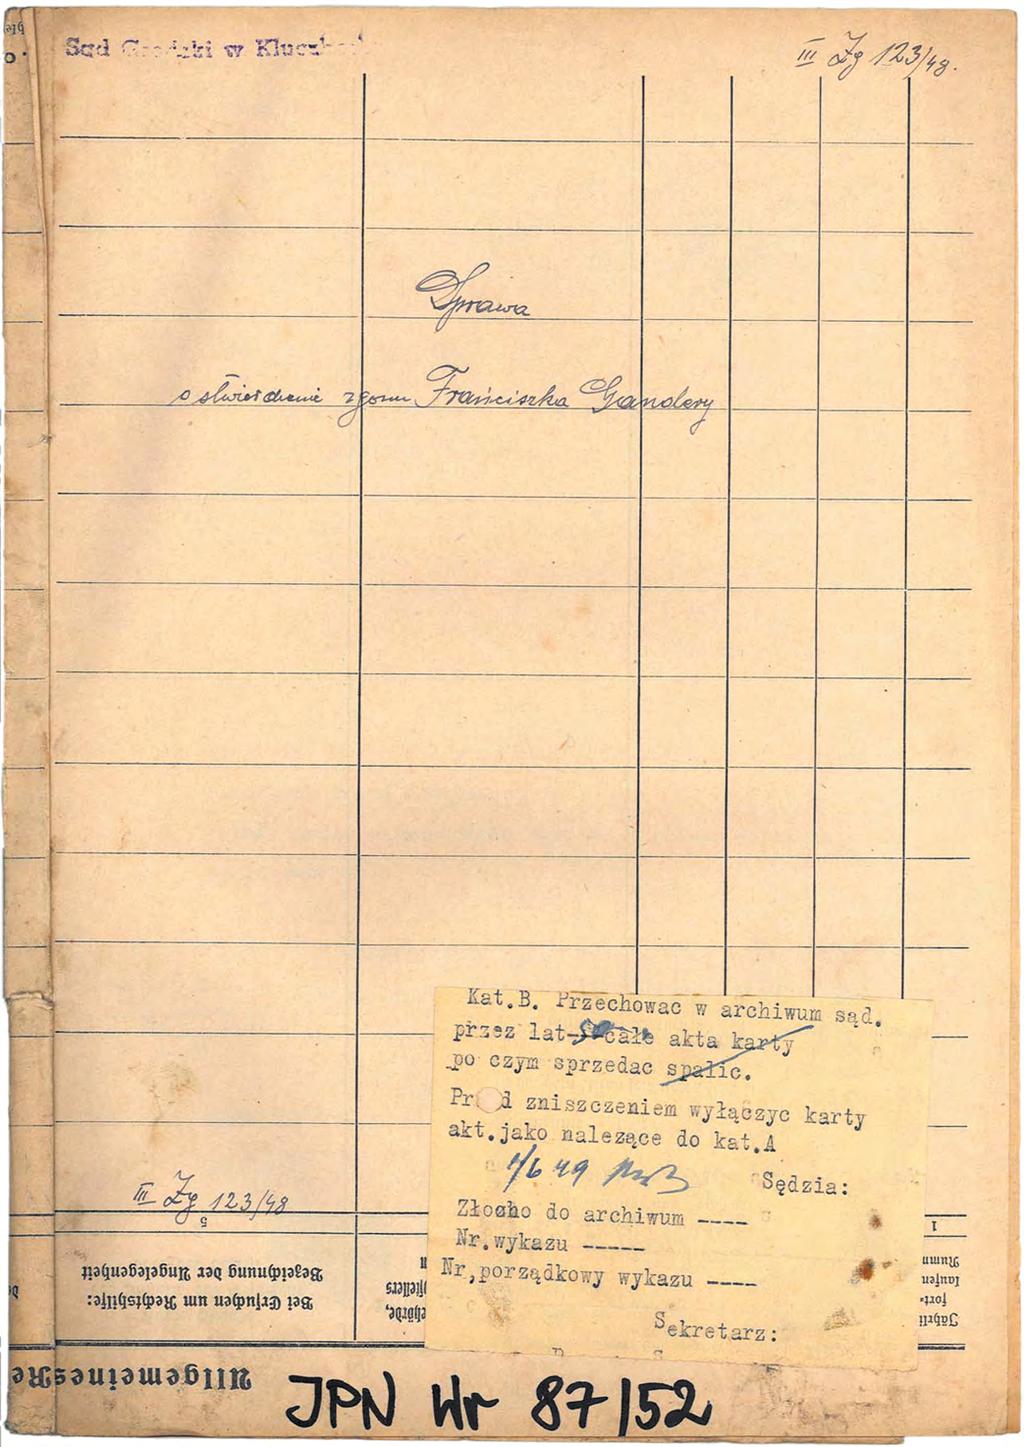 Sąd Grodzki w
III Zg 123/48.
Sprawa
o stwierdzenie zgonu Franciszka Gandery
Kat.B. Przechowac w archiwum sąd.
przez lat 50 całe akta karty
po czym sprzedac spalic.
Prz d zniszczeniem wyłączyc karty
akt.jako nalezące do kat.A
1/6 49
Sędzia:
Złozono do archiwum ----
Nr.wykazu -----
Nr,porządkowy wykazu ----
Sekretarz:
III Zg 123/48
5
1
Bei Ersuchen um Rechtshilfe:
Bezeichnung der Angelegenheit
fort-
laufen
Numm
Jährli
Allgemeines Re
JPN Nr 87/52